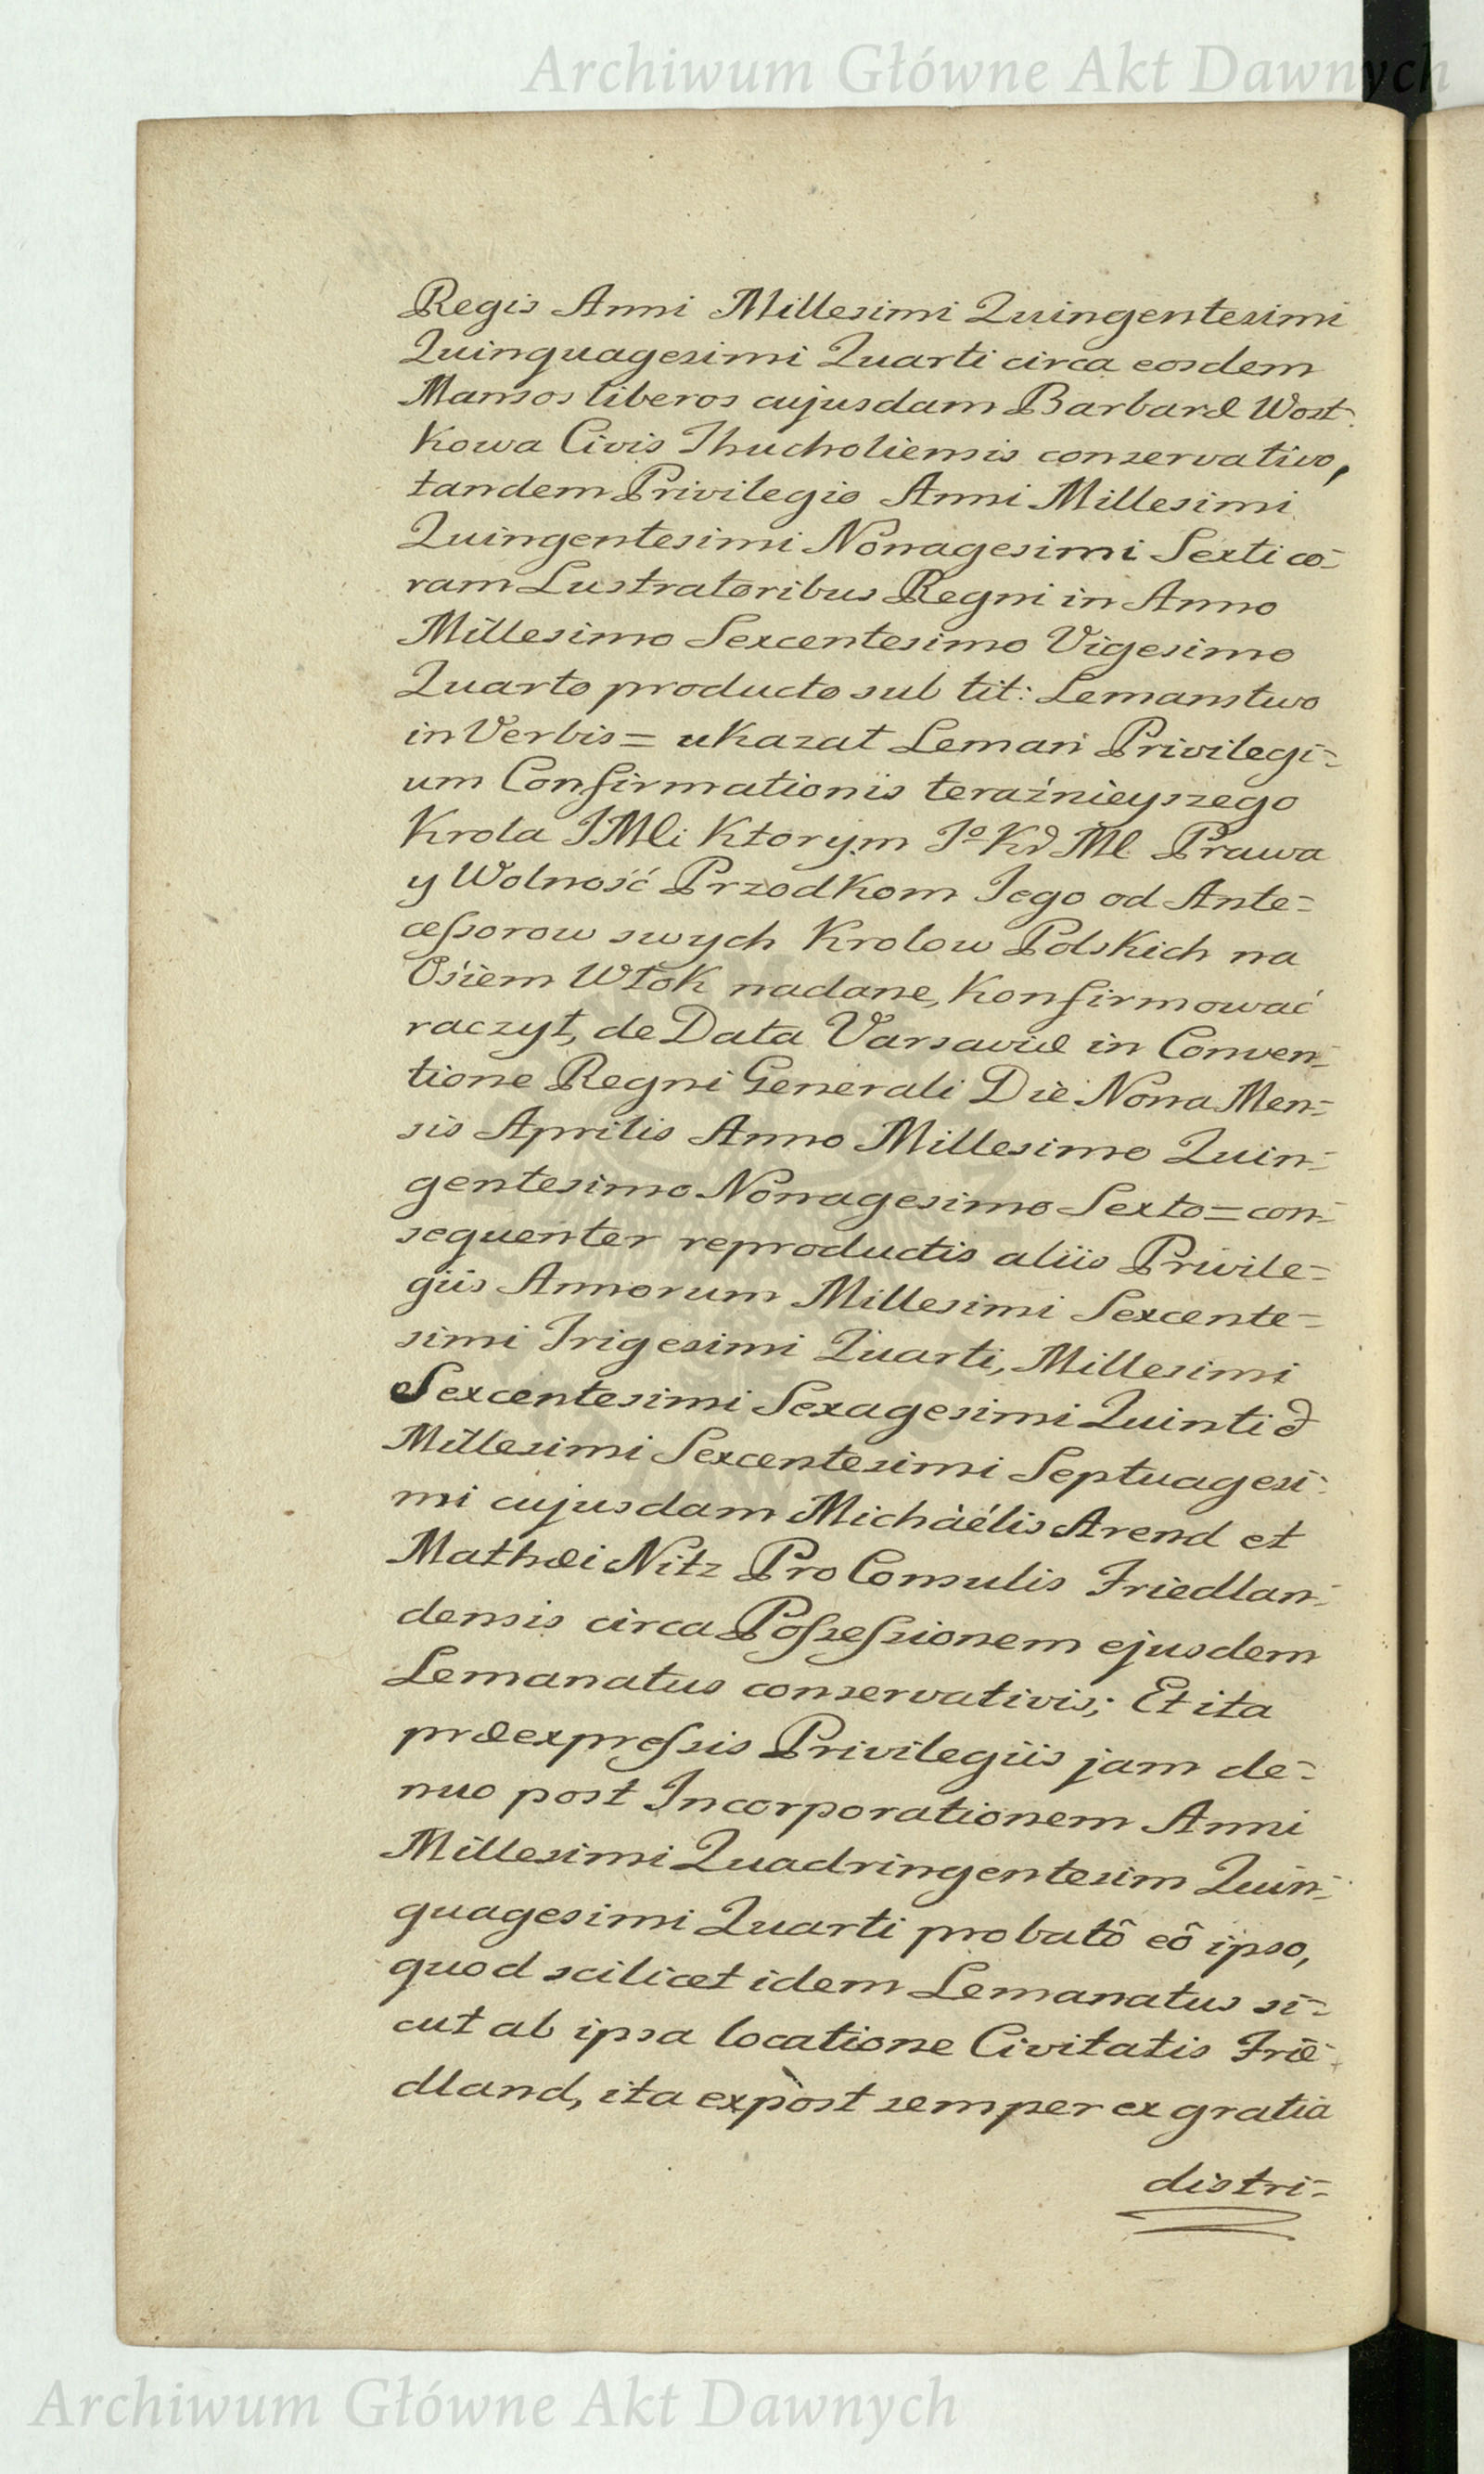 Archiwum Główne Akt Dawnych
Regis Anni Millesimi Quingentesimi
Quinquagesimi Quarti circa eosdem
Mansos liberos cujusdam Barbaræ Wost-
kowa Civis Thucholiensis conservativo,
tandem Privilegio Anni Millesimi
Quingentesimi Nonagesimi Sexti co-
ram Lustratoribus Regni in Anno
Millesimo Sexcentesimo Vigesimo
Quarto producto sub tit: Lemanstwo
in Verbis = ukazał Leman Privilegi-
um Confirmationis teraźnieyszego
Krola JMLi ktorym Jº KdML Prawa
y Wolność Przodkom Jego od Ante-
ceſsorow swych Krolow Polskich na
Ośiem Włok nadane, konfirmować
raczył, de Data Varsaviæ in Conven-
tione Regni Generali Die Nona Men-
sis Aprilis Anno Millesimo Quin-
gentesimo Nonagesimo Sexto = con-
sequenter reproductis aliis Privile-
giis Annorum Millesimi Sexcente-
simi Trigesimi Quarti, Millesimi
Sexcentesimi Sexagesimi Quinti &
Millesimi Sexcentesimi Septuagesi-
mi cujusdam Michaelis Arend et
Mathæi Nitz Pro Consulis Friedlan-
densis circa Poſseſsionem ejusdem
Lemanatus conservativis; Et ita
præexpreſsis Privilegiis jam de-
nuo post Incorporationem Anni
Millesimi Quadringentesim Quin-
quagesimi Quarti probatô eô ipso,
quod scilicet idem Lemanatus si-
cut ab ipsa locatione Civitatis Frie-
dland, ita expòst semper ex gratia
distri-
Archiwum Główne Akt Dawnych